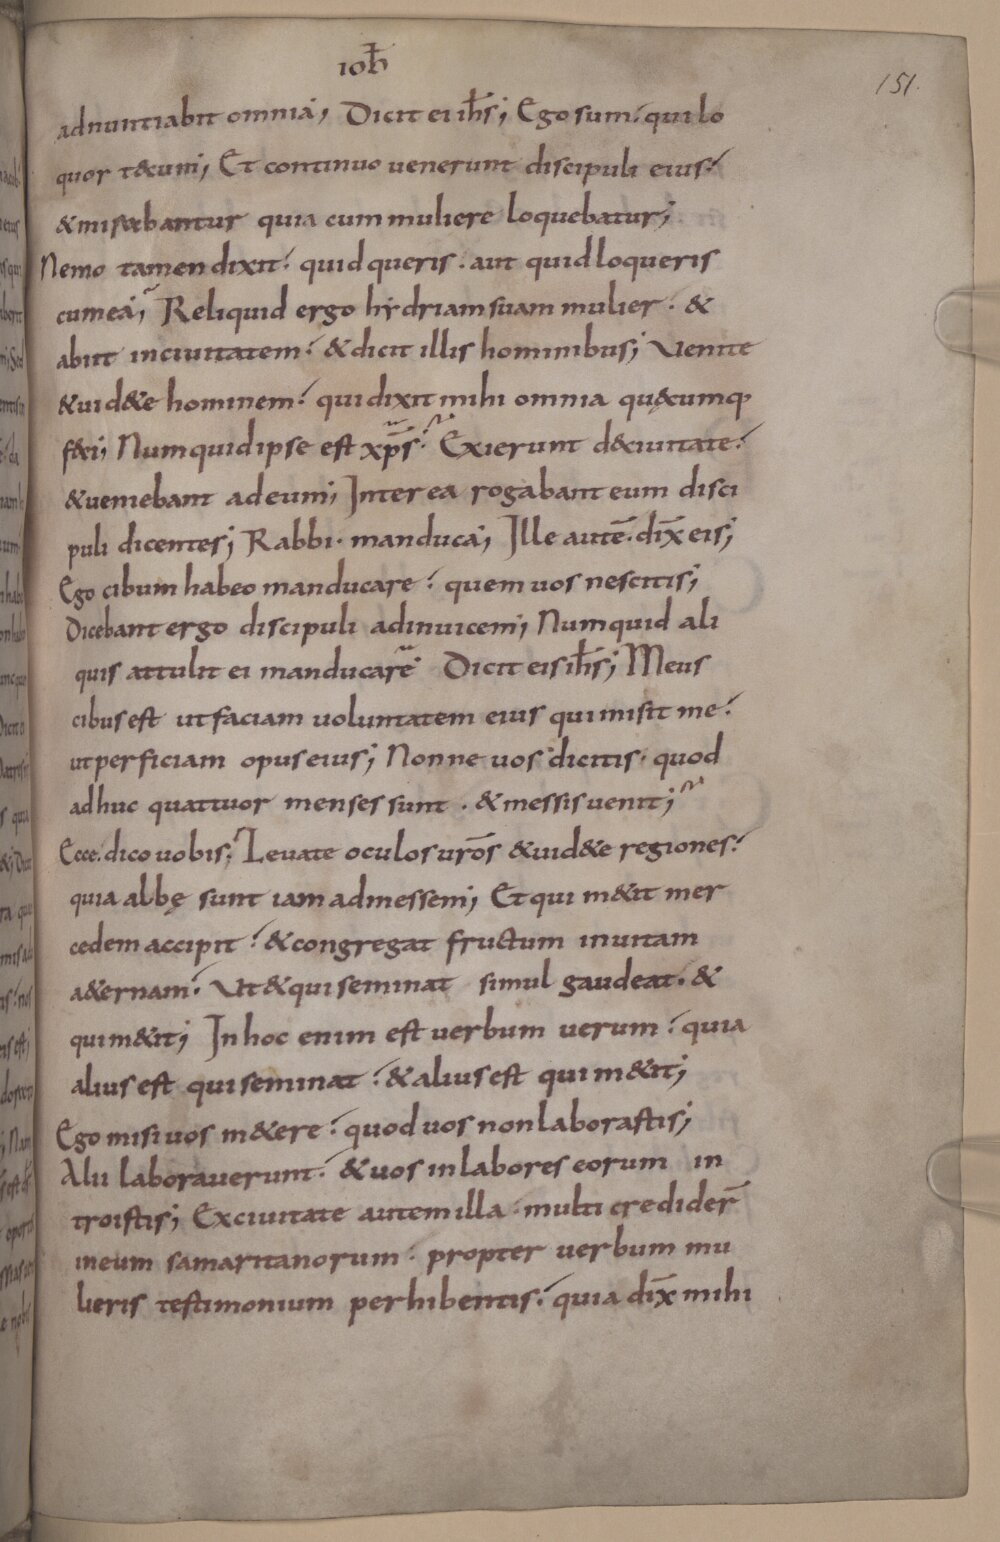 ioħ
151.
adnuntiabit omnia; Dicit ei ih̄s; Ego sum. qui lo
quor t&cum; Et continuo venerunt discipuli eius.
& mirabantur quia cum muliere loquebatur;
Nemo tamen dixit. quid queris. aut quid loqueris
cum ea; Reliquid ergo hydriam suam mulier. &
abiit in ciuitatem. & dicit illis hominibus; Venite
& uid&e hominem. qui dixit mihi omnia quęcumq;
feci; Numquid ipse est xp̄s. Exierunt de ciuitate.
& veniebant ad eum; Interea rogabant eum disci
puli dicentes; Rabbi. manduca; Ille autē. dix̄ eis;
Ego cibum habeo manducare. quem uos nescitis;
Dicebant ergo discipuli adinuicem; Numquid ali
quis attulit ei manducare Dicit eis ih̄s; Meus
cibus est ut faciam uoluntatem eius qui misit me.
ut perficiam opus eius; Nonne uos dicitis. quod
adhuc quattuor menses sunt. & messis uenit;
Ecce. dico uobis; Leuate oculos ur̄os & uid&e regiones.
quia albę sunt iam ad messem; Et qui m&it mer
cedem accipit. & congregat fructum in uitam
a&ernam. Vt & qui seminat simul gaudeat. &
qui m&it; In hoc enim est uerbum uerum. quia
alius est qui seminat. & alius est qui m&it;
Ego misi uos m&ere. quod uos non laborastis;
Alii laboraverunt. & uos in labores eorum in
troistis; Ex ciuitate autem illa. multi credider̄
in eum samaritanorum. propter uerbum mu
lieris testimonium perhibentis. quia dix̄ mihi